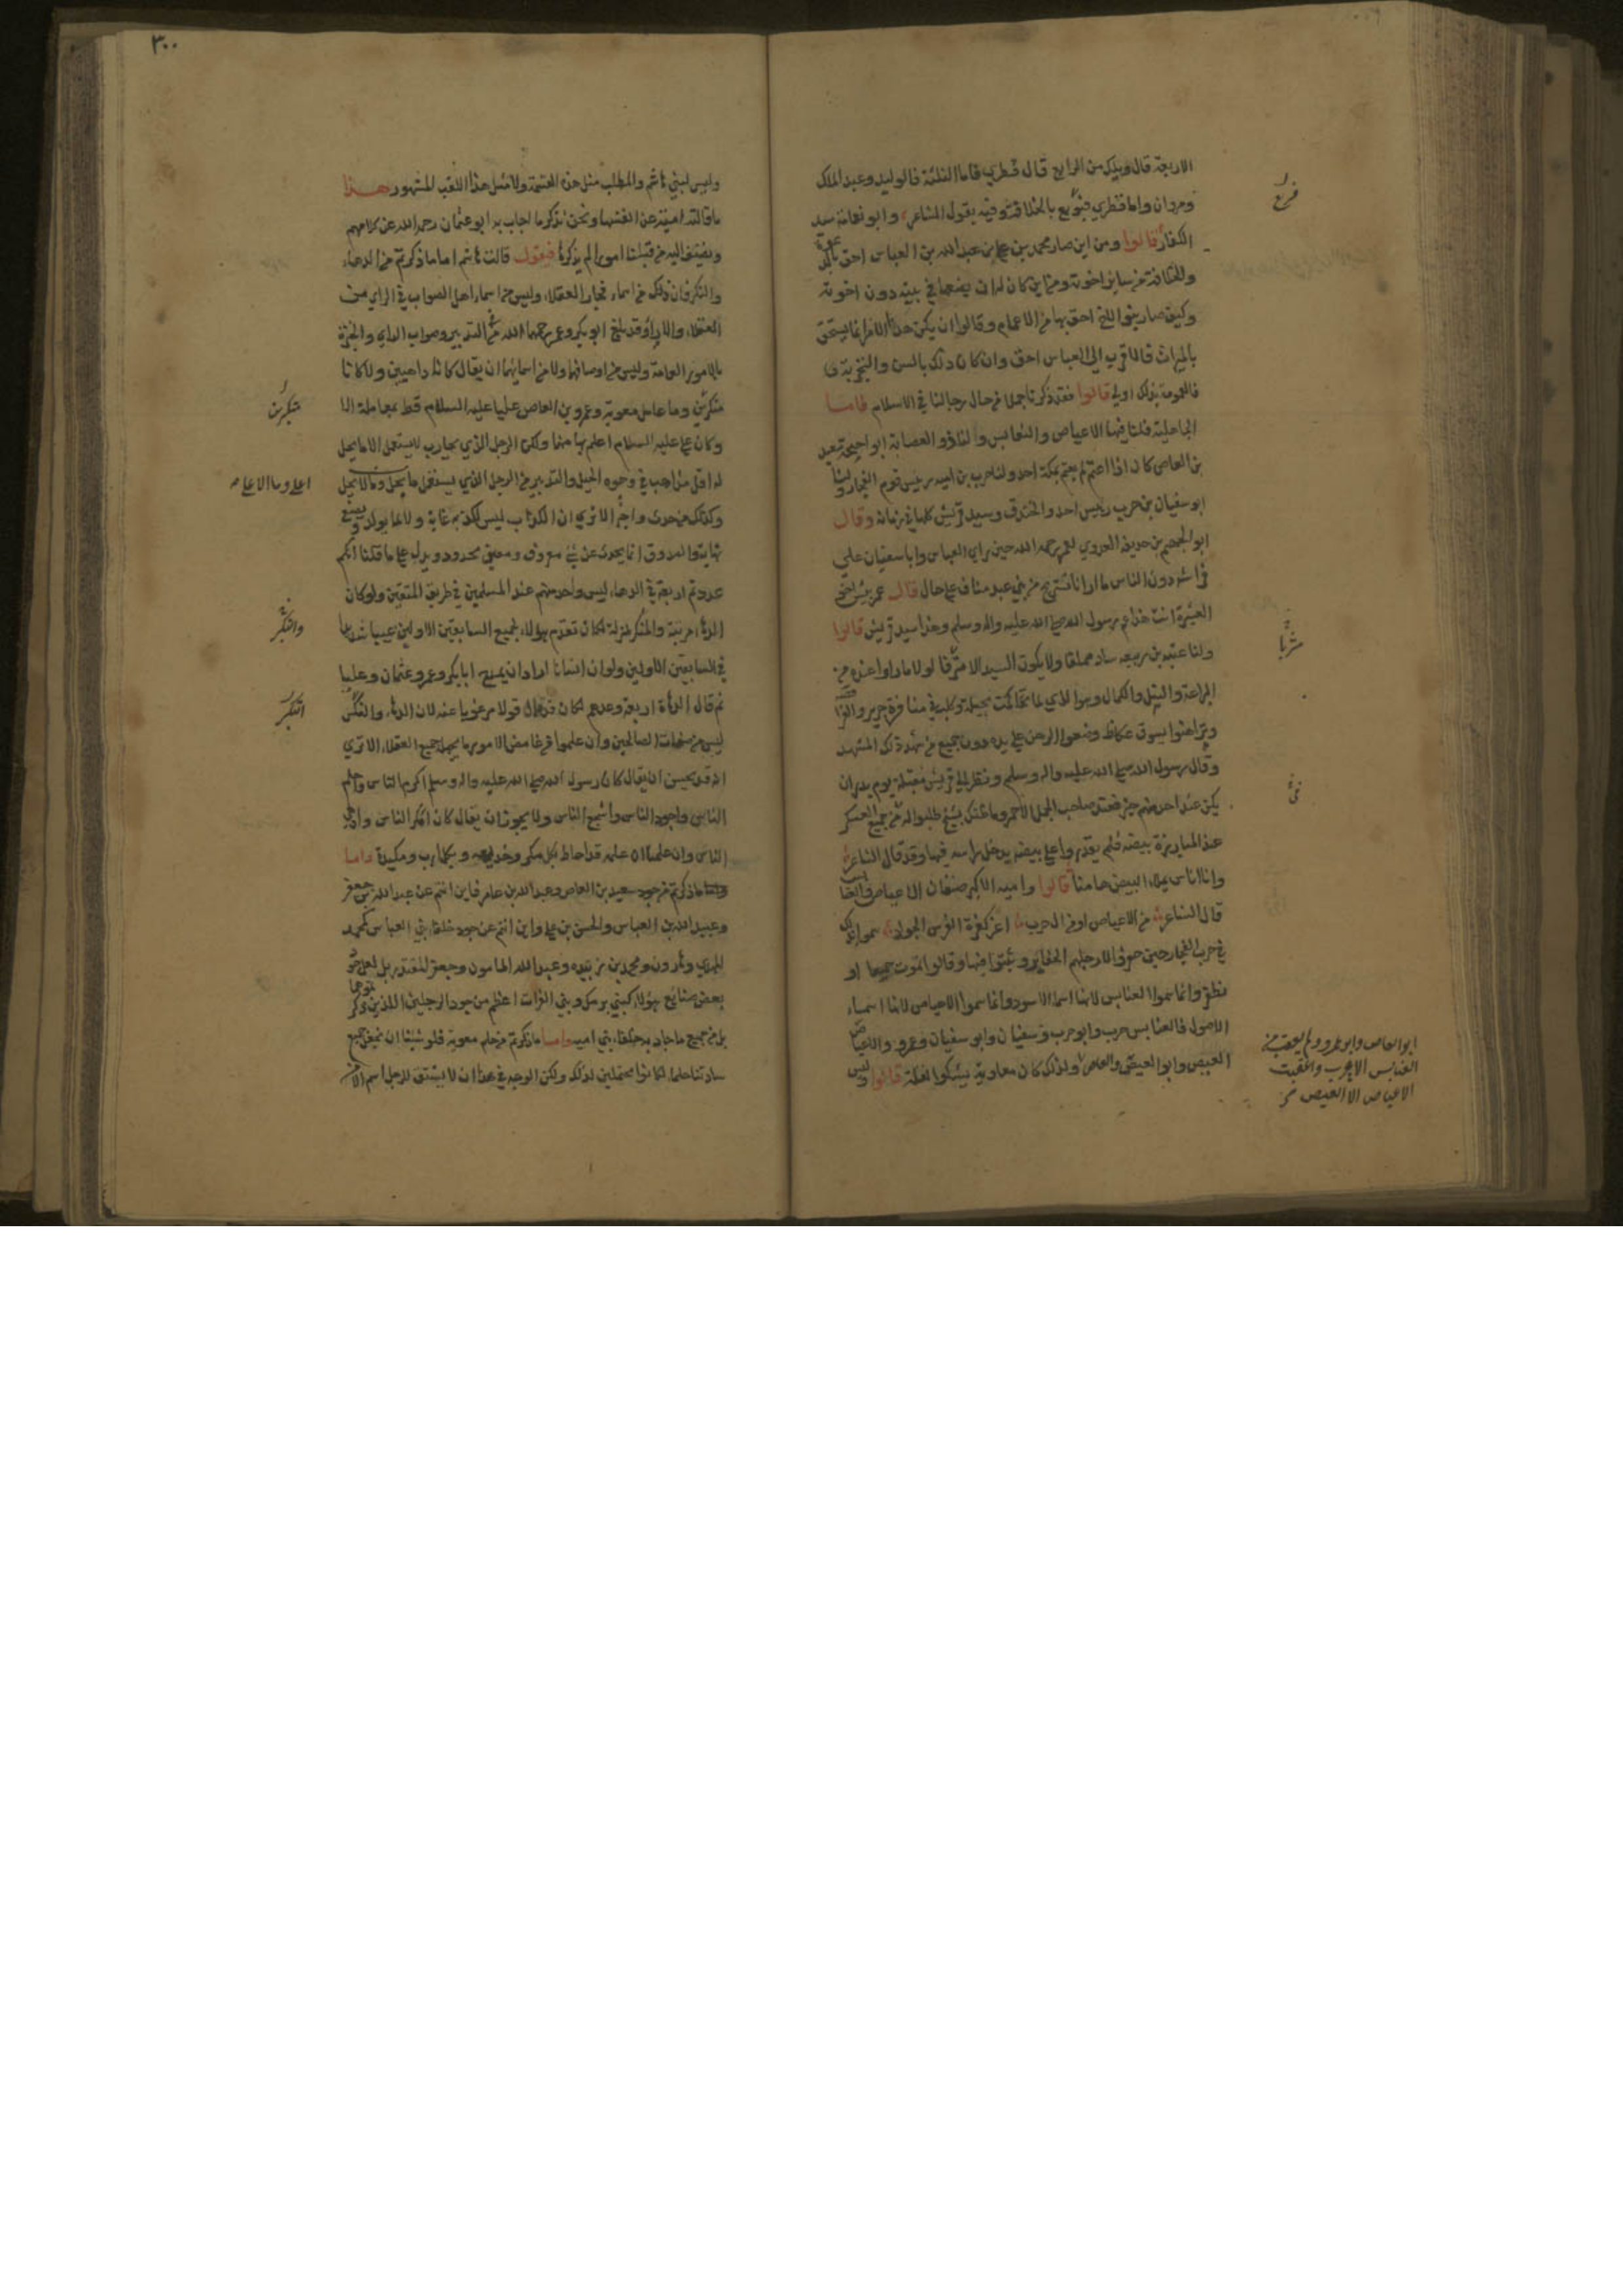 الاربعة قال ويلك من الرابع قال قطري فاما الثلثة فالوليد وعبد الملك
ومروان واما قطري فبويع بالخلافة وفيه يقول الشاعر وابو نعامة سيد
الكفار قالوا ومن اين صار محمد بن علي بن عبد الله بن العباس احق بالدعوة
والخلافة من سائر اخوته ومن اين كان له ان يضعها في بيته دون اخوته
وكيف صار بنو الاخ احق بها من الاعمام وقالوا ان يكن هذا الامر انما يستحق
بالميراث فالاقرب الى العباس احق وان كان ذلك بالسن والتجربة
فالعمومة بذلك اولى قالوا فقد ذكرنا جملا من حال رجالنا في الاسلام فاما
الجاهلية فلنا فيها الاعياص والعنابس ولنا ذو العصابة ابو احيحة سعيد
بن العاص كان اذا اعتم لم يعتم بمكة احد ولنا حرب بن امية رئيس يوم الفجار ولنا
ابو سفيان بن حرب رئيس احد والخندق وسيد قريش كلها في زمانه وقال
ابو الجهم بن حذيفة العدوي لعمر رحمه الله حين راى العباس وابا سفيان على
فراشه دون الناس ما ارانا نستريح من بني عبد مناف على حال قال عمر بئس اخو
العشيرة انت هذا عم رسول الله صلى الله عليه واله وسلم وهذا سيد قريش قالوا
ولنا عتبة بن ربيعة ساد مملقا ولا يكون السيد الا مترفا لولا ما راوا عنده من
البراعة والنبل والكمال وهو الذي لما تحاكمت بجيلة وكلب في منافرة جرير والفرافصة
وتراهنوا بسوق عكاظ وضعوا الرهن على يده دون جميع من شهد ذلك المشهد
وقال رسول الله صلى الله عليه واله وسلم ونظر الى قريش مقبلة يوم بدر ان
يكن عند احد منهم خير فعند صاحب الجمل الاحمر وما ظنك بشيخ طلبوا له من جميع العسكر
عند المبارزة بيضة فلم يقدروا على بيضة يدخل راسه فيها وقد قال الشاعر
وانا اناس يملا البيض هامنا قالوا وامية الاكبر صنفان الاعياص والعنابس
قال الشاعر من الاعياص او من ال حرب اغر كغرة الفرس الجواد سموا بذلك
في حرب الفجار حين حفروا لارجلهم الحفاير وثبتوا فيها وقالوا نموت جميعا او
نظفر وانما سموا العنابس لانها اسماء الاسود وانما سموا الاعياص لانها اسماء
الاصول فالعنابس حرب وابو حرب وسفيان وابو سفيان وعمرو والاعياص
العيص وابو العيص والعاص ولذلك كان معاوية يشكو القلة قالوا وليس
ابو العاص وابو عمرو ولم يعقب من
العنابس الا حرب واعقبت
الاعياص الا العيص
٣٠٠
وليس لبني هاشم والمطلب مثل هذه القسمة ولا مثل هذا اللقب المشهور هذا
ما قالته امية عن انفسها ونحن نذكر ما اجاب به ابو عثمان رحمه الله عن كلامهم
ونضيف اليه من قبلنا امورا لم يذكرها فنقول قالت هاشم اما ما ذكرتم من الدهاء
والنكر فان ذلك من اسماء فجار العقلاء وليس من اسماء اهل الصواب في الراي من
العقلاء والابرار وقد بلغ ابو بكر وعمر رحمهما الله من التدبير وصواب الراي والخبرة
بالامور العامة وليس من اوصافهما ولا من اسمائهما ان يقال كانا داهيين ولا كانا
منكرين وما عامل معوية وعمرو بن العاص عليا عليه السلام قط بمعاملة الا
وكان علي عليه السلام اعلم بها منهما ولكن الرجل الذي يحارب لا يستعمل الا ما يحل
له اقل مذاهب في وجوه الحيل والتدبير من الرجل الذي يستعمل ما يحل وما لا يحل
وكذلك من حدث واخبر الا ترى ان الكذاب ليس لكذبه غاية ولا لما يولد ويصنع
نهاية والصدوق انما يحدث عن شيء معروف ومعنى محدود ويدل على ما قلنا انكم
عددتم اربعة في الدهاء ليس واحد منهم عند المسلمين في طريق المتقين ولو كان
الدهاء مرتبة والمنكر منزلة لكان تقدم هؤلاء لجميع السابقين الاولين عيبا شديدا
في السابقين الاولين ولو ان انسانا اراد ان يمدح ابا بكر وعمر وعثمان وعليا
ثم قال الدهاة اربعة وعدهم لكان قد قال قولا مرغوبا عنه لان الدهاء والنكر
ليس من صفات الصالحين وان علموا من غامض الامور ما يجهله جميع العقلاء الا ترى
انه قد يحسن ان يقال كان رسول الله صلى الله عليه واله وسلم اكرم الناس واحلم
الناس واجود الناس واشجع الناس ولا يجوز ان يقال كان امكر الناس وادهى
الناس وان علمنا ان علمه قد احاط بكل مكر وخديعة وبكل ارب ومكيدة واما
ما ذكرتم من جود سعيد بن العاص وعبد الله بن عامر فاين انتم عن عبد الله بن جعفر
وعبيد الله بن العباس والحسن بن علي واين انتم عن جود خلفاء بني العباس كمحمد
المهدي وهارون ومحمد بن زبيدة وعبد الله المامون وجعفر المقتدر بل لعل جود
بعض صنائع هؤلاء كبني برمك وبني الفرات اعظم من جود الرجلين اللذين ذكرتموهما
بل من جميع ما جاد به خلفاء بني امية واما ما ذكرتم من حلم معوية فلو شئنا ان نجعل جميع
ساداتنا حلماء لكانوا محتملين لذلك ولكن الوجه في هذا ان لا يشتق للرجل اسم الا من